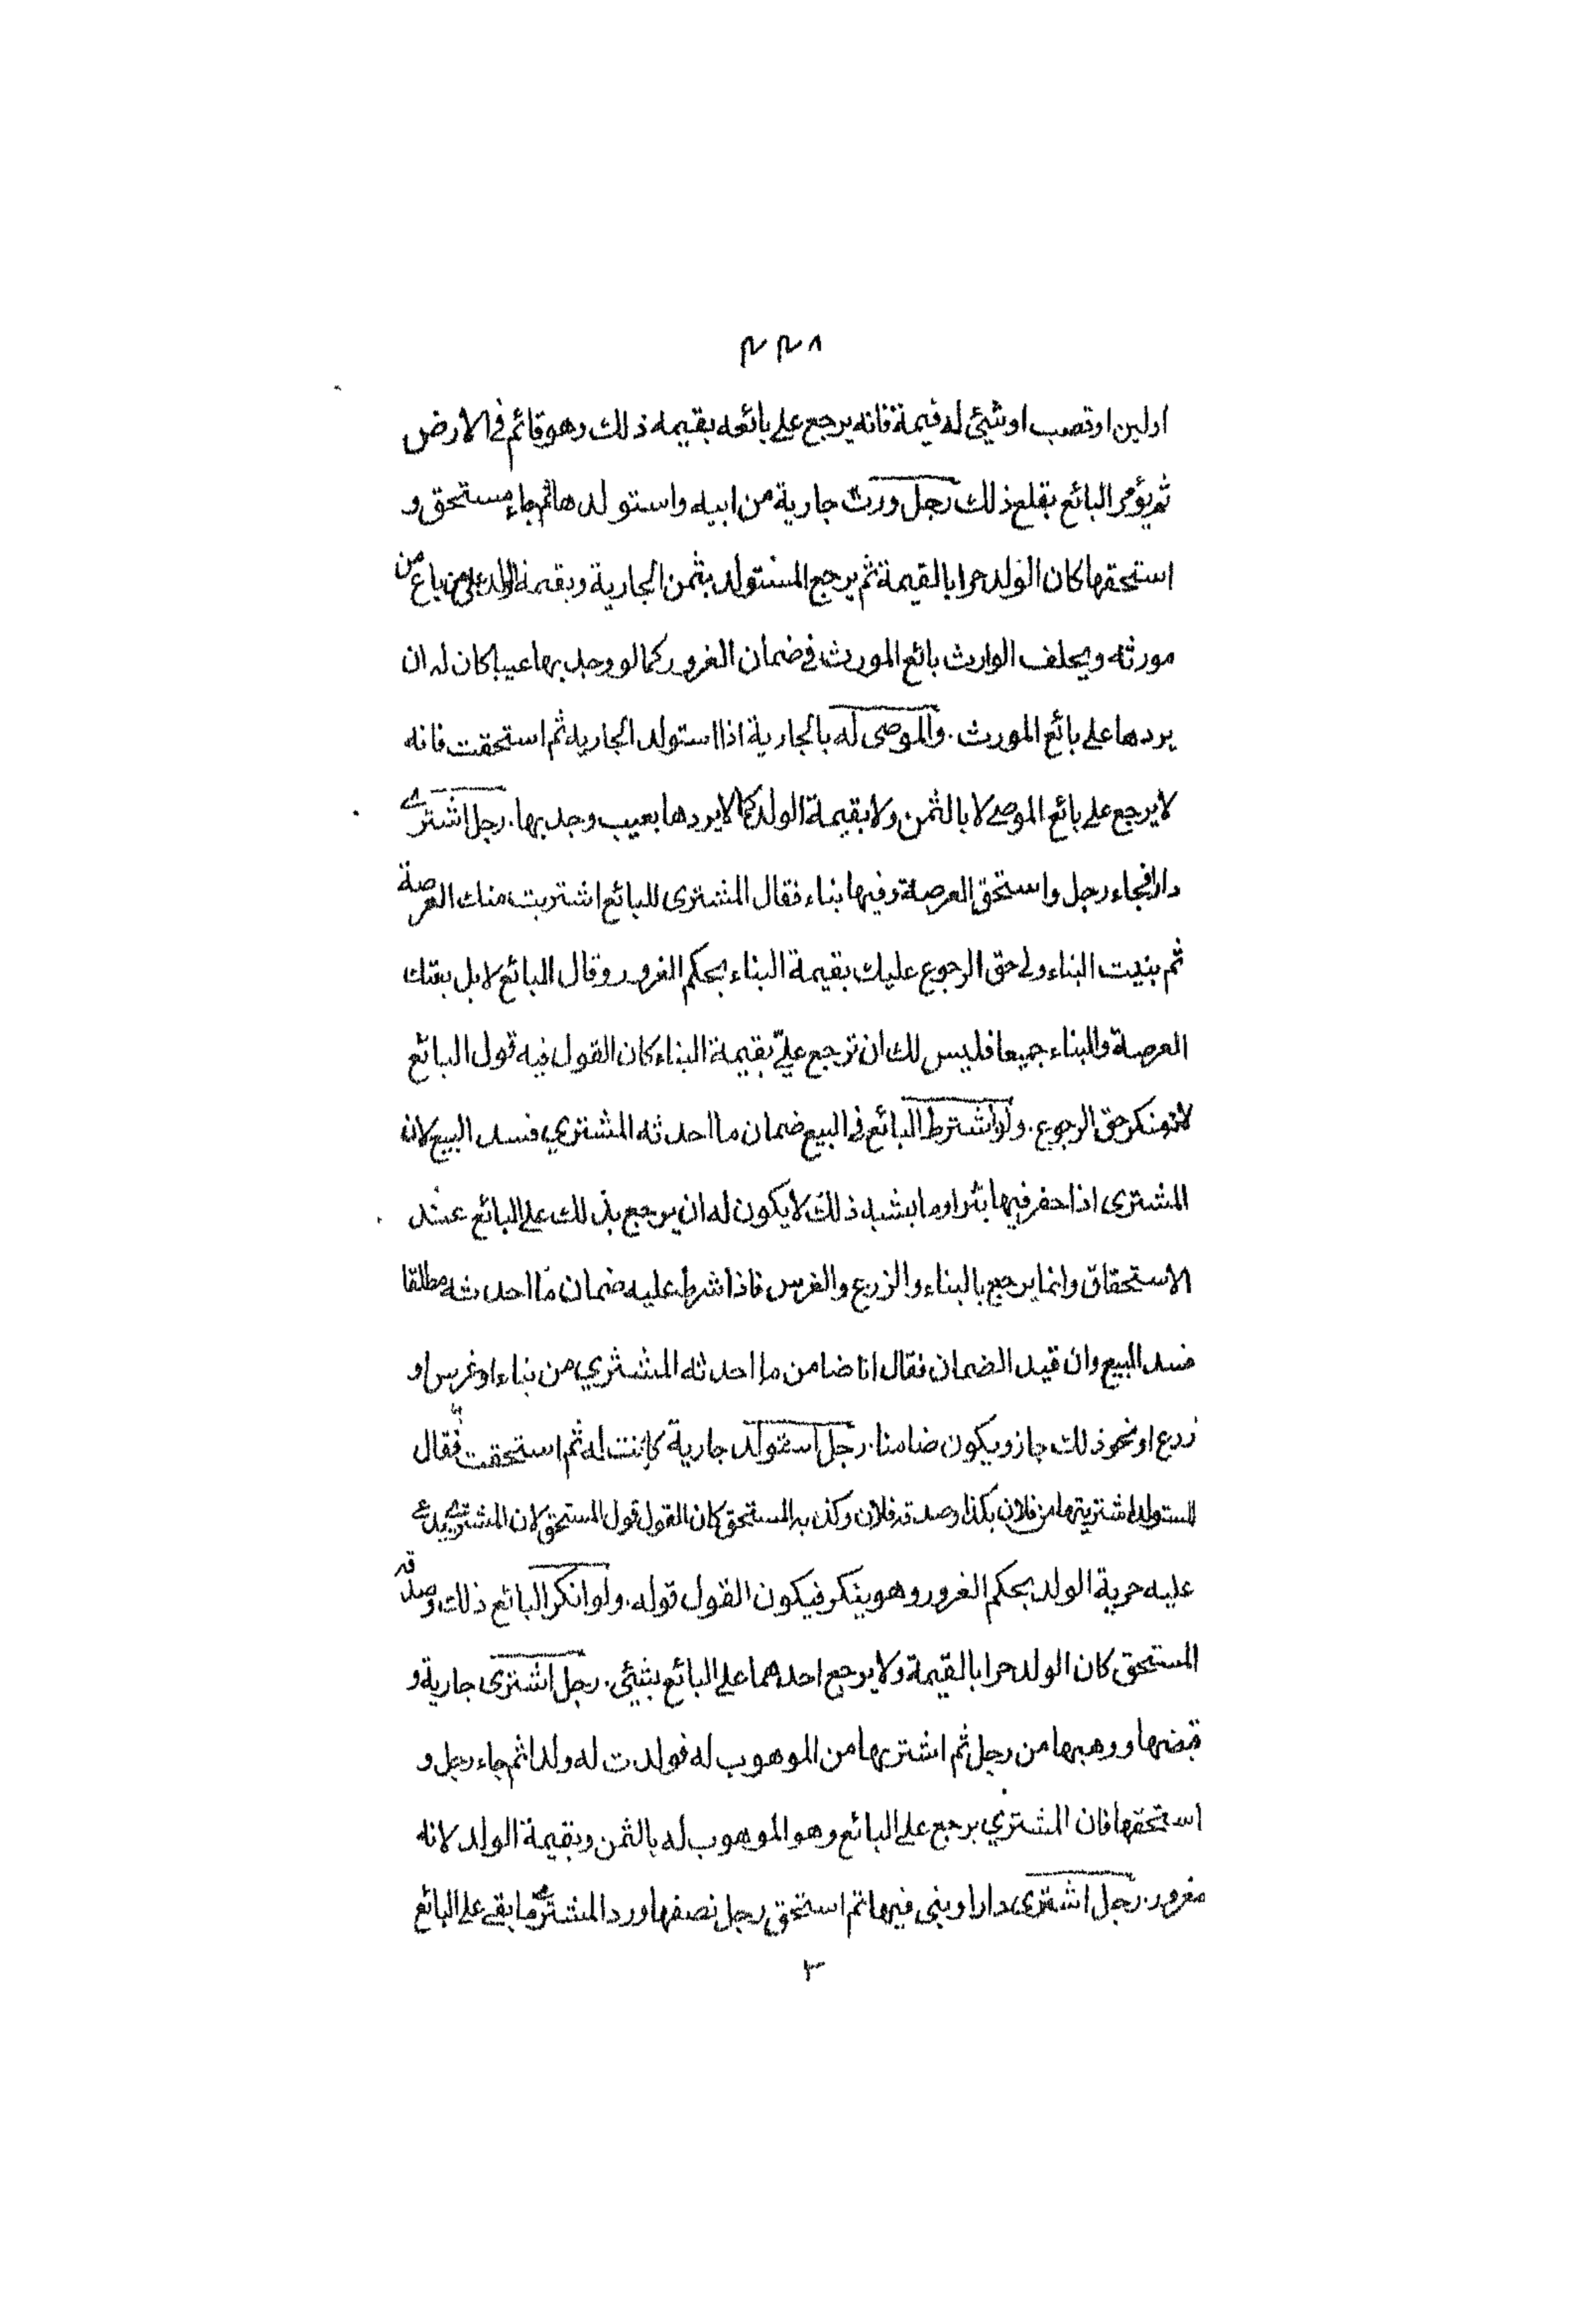 ٢٢٨
اولبن او قصب او شيئ له قيمة فانه يرجع على بائعه بقيمه ذلك وهو قائم فى الارض
ثم يؤمر البائع بقلع ذلك رجل ورث جارية من ابيه واستولدها ثم جاء مستحق و
استحقها كان الولد حرا بالقيمة ثم يرجع المستولد بثمن الجارية وبقيمة الولد على من باع من
مورثه ويخلف الوارث بائع المورث فى ضمان الغرور كما لو وجد بها عيبا كان له ان
يردها على بائع المورث. والموصى له بالجارية اذا استولد الجارية ثم استحقت فانه
لا يرجع على بائع الموصى لا بالثمن ولا بقيمة الولد كما لا يردها بعيب وجد بها. رجل اشترے
دارا فجاء رجل واستحق العرصة وفيها بناء فقال المشترى للبائع اشتريت منك العرصة
ثم بنيت البناء ولى حق الرجوع عليك بقيمة البناء بحكم الغرور وقال البائع لا بل بعتك
العرصة والبناء جميعا فليس لك ان ترجع علىّ بقيمة البناء كان القول فيه قول البائع
لانه منكر حق الرجوع. ولو اشترط البائع فى البيع ضمان ما احدثه المشتري فسد البيع لان
المشترى اذا حفر فيها بئرا وما يشبه ذلك لا يكون له ان يرجع بذلك على البائع عند
الاستحقاق وانما يرجع بالبناء والزرع والغرس فاذا شرط عليه ضمان ما احدثه مطلقا
فسد البيع وان قيد الضمان فقال انا ضامن ما احدثه المشتري من بناء او غرس او
زرع او نحو ذلك جاز ويكون ضامنا. رجل استولد جارية كانت له ثم استحقت فقال
المستولد اشتريتها من فلان بكذا وصدقه فلان وكذبه المستحق كان القول قول المستحق لان المشترے يدعے
عليه حرية الولد بحكم الغرور وهو ينكر فيكون القول قوله. ولو انكر البائع ذلك وصدقه
المستحق كان الولد حرا بالقيمة ولا يرجع احدهما على البائع بشيئ. رجل اشترى جارية و
قبضها ووهبها من رجل ثم اشتريها من الموهوب له فولدت له ولدا ثم جاء رجل و
استحقها فان المشتري يرجع على البائع وهو الموهوب له بالثمن وبقيمة الولد لانه
مغرور. رجل اشترى دارا وبنى فيها ثم استحق رجل نصفها ورد المشترے ما بقے على البائع